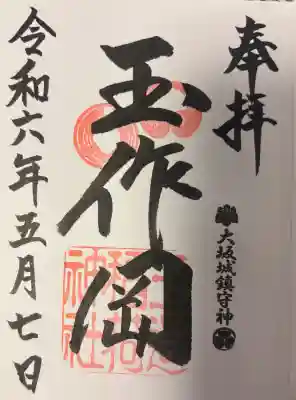 奉拝
大坂城鎮守神
玉作岡
玉造
稲荷
神社
令和六年五月七日